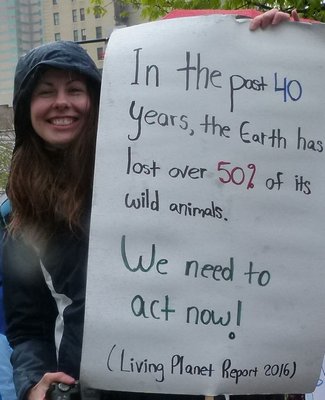 In the past 40
years, the Earth has
lost over 50% of its
wild animals.
We need to
act now!
(Living Planet Report 2016)